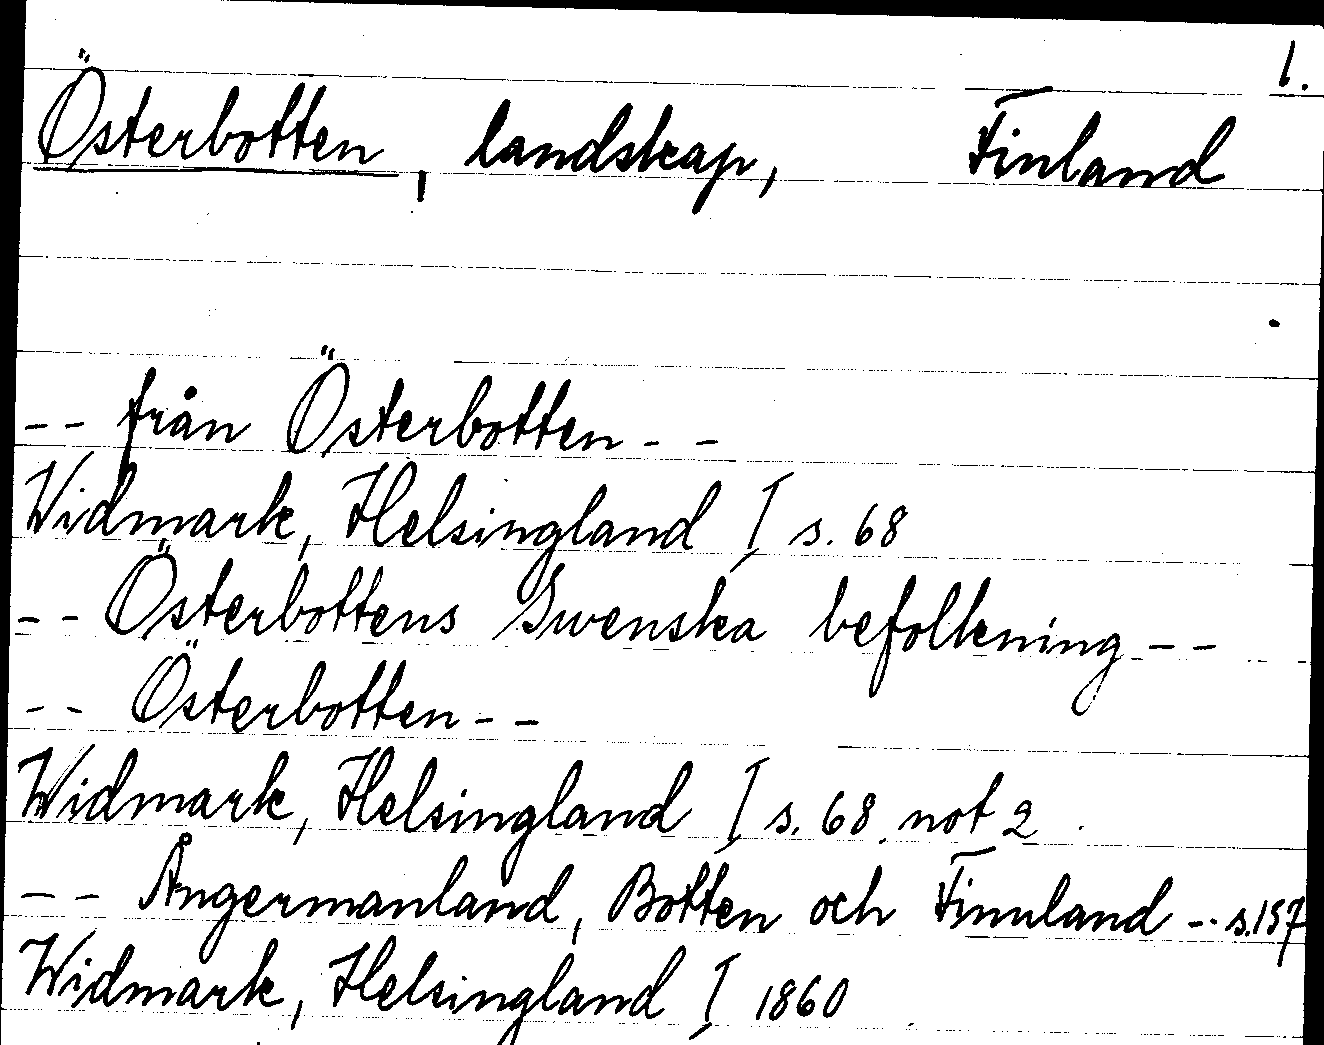 1.
Österbotten, landskap, Finland
-- från Österbotten --
Widmark, Helsingland I s. 68
-- Österbottens Swenska befolkning --
-- Österbotten --
Widmark, Helsingland I s. 68. not 2.
-- Ångermanland, Botten och Finnland -- s.197
Widmark, Helsingland I 1860